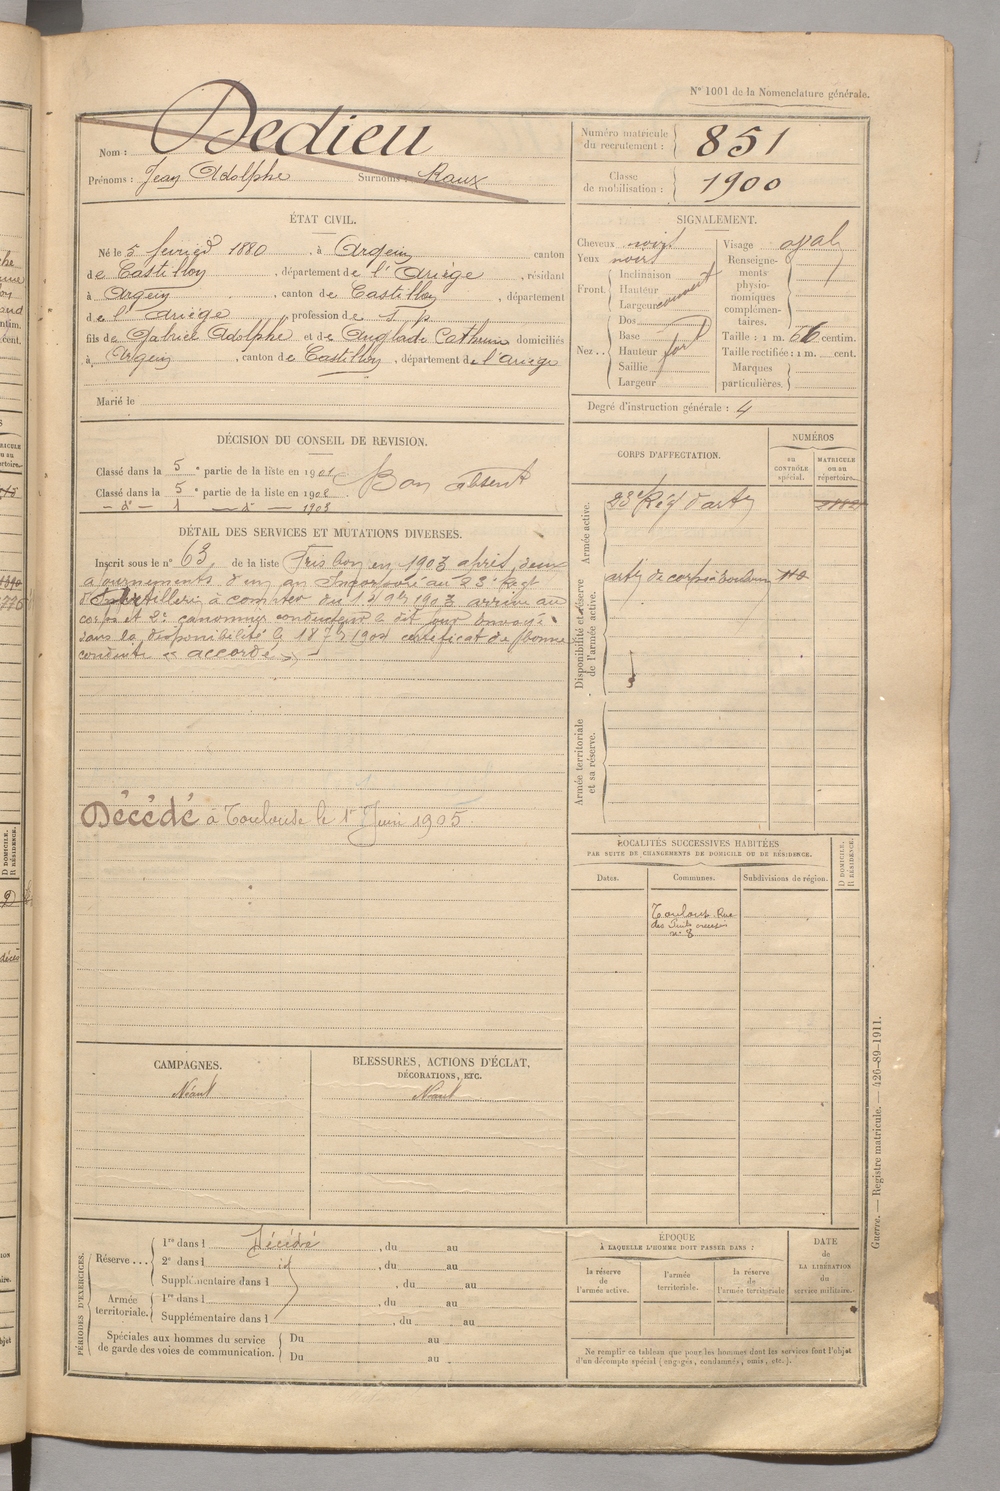 N° 1001 de la Nomenclature générale.
Nom : Dedieu
Prénoms : Jean Adolphe Surnoms : Raux
Numéro matricule du recrutement : 851
Classe de mobilisation : 1900
ÉTAT CIVIL.
Né le 5 février 1880, à Argein canton
de Castillon, département de l'Ariège, résidant
à Argein, canton de Castillon, département
de l'Ariège, profession de s. p.
fils de Gabriel Adolphe et de Anglade Catherine domiciliés
à Argein, canton de Castillon, département de l'Ariège
Marié le
SIGNALEMENT.
Cheveux noirs
Yeux noirs
Front. Inclinaison
Hauteur
Largeur couvert
Nez... Dos
Base
Hauteur fort
Saillie
Largeur
Visage oval
Renseignements physionomiques complémentaires.
Taille : 1 m. 66 centim.
Taille rectifiée : 1 m. cent.
Marques particulières.
Degré d'instruction générale : 4
DÉCISION DU CONSEIL DE REVISION.
Classé dans la 5e partie de la liste en 1901
Classé dans la 5e partie de la liste en 1902
— d° — 1 — d° — 1903
Bon absent
DÉTAIL DES SERVICES ET MUTATIONS DIVERSES.
Inscrit sous le n° 63 de la liste Bon en 1903 après deux
ajournements d'un an Incorporé au 23e Regt
d'Artillerie à compter du 1903 arrivé au
corps et 2e canonnier conducteur le dit jour Envoyé
dans la disponibilité le 18 1904 certificat de bonne
conduite « accordé »
Décédé à Toulouse le 1er Juin 1905
CORPS D'AFFECTATION.
NUMÉROS
au contrôle spécial.
matricule ou au répertoire.
Armée active.
23e Rég d'arty
Disponibilité et réserve de l'armée active.
arty de corps à Toulouse
Armée territoriale et sa réserve.
LOCALITÉS SUCCESSIVES HABITÉES
PAR SUITE DE CHANGEMENTS DE DOMICILE OU DE RÉSIDENCE.
Dates.
Communes.
Subdivisions de région.
D DOMICILE.
R RÉSIDENCE.
Toulouse Rue
des Puits creusés
n° 8
CAMPAGNES.
Néant
BLESSURES, ACTIONS D'ÉCLAT,
DÉCORATIONS, ETC.
Néant
PÉRIODES D'EXERCICES.
Réserve... 1re dans l Décédé, du au
2e dans l id, du au
Supplémentaire dans l, du au
Armée territoriale. 1re dans l, du au
Supplémentaire dans l, du au
Spéciales aux hommes du service Du au
de garde des voies de communication. Du au
ÉPOQUE
À LAQUELLE L'HOMME DOIT PASSER DANS :
la réserve de l'armée active.
l'armée territoriale.
la réserve de l'armée territoriale
DATE
de
LA LIBÉRATION
du
service militaire.
Ne remplir ce tableau que pour les hommes dont les services font l'objet
d'un décompte spécial (engagés, condamnés, omis, etc.).
Guerre. — Registre matricule. — 426-89-1911.